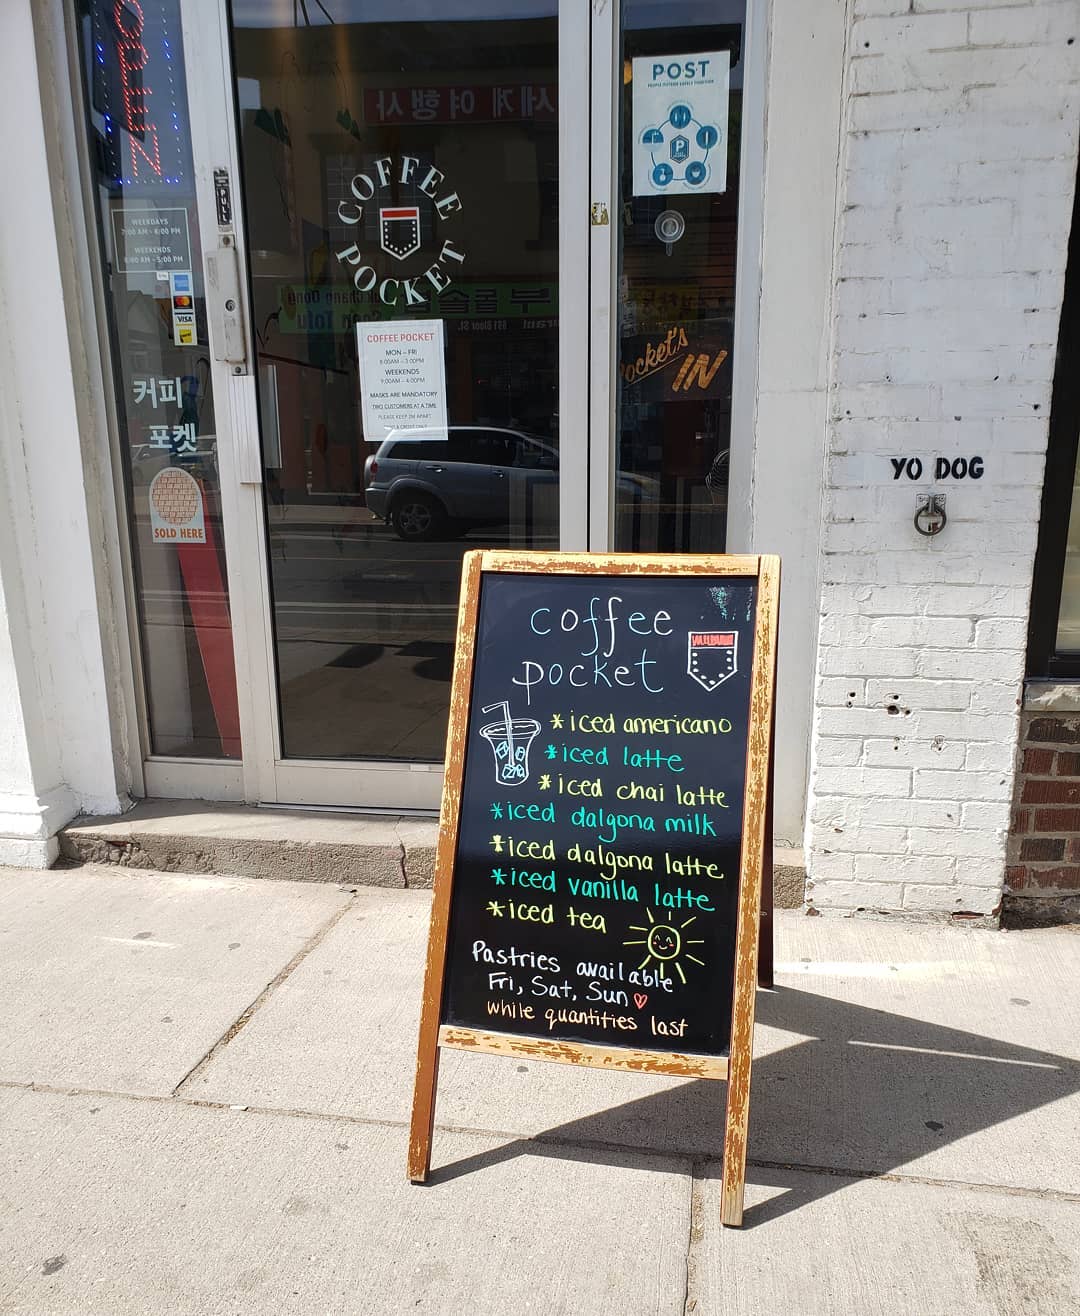 OPEN
PULL
WEEKDAYS
7:00 AM - 6:00 PM
WEEKENDS
8:00 AM - 5:00 PM
VISA
커피
포켓
SOLD HERE
COFFEE
POCKET
세계 여행사
COFFEE POCKET
MON – FRI
8:00AM – 3:00PM
WEEKENDS
9:00AM – 4:00PM
MASKS ARE MANDATORY
TWO CUSTOMERS AT A TIME
PLEASE KEEP 2M APART
POST
P
Pocket's
IN
YO DOG
coffee
pocket
*iced americano
*iced latte
*iced chai latte
*iced dalgona milk
*iced dalgona latte
*iced vanilla latte
*iced tea
Pastries available
Fri, Sat, Sun
while quantities last